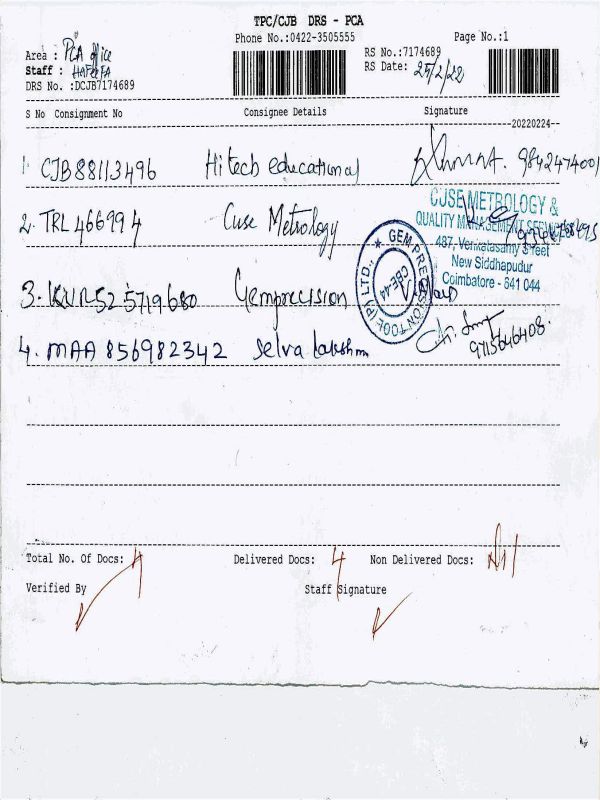 TPC/CJB DRS - PCA
Phone No.:0422-3505555
Page No.:1
Area : PCA office
Staff : HAFEEFA
DRS No. :DCJB7174689
RS No.:7174689
RS Date: 25/2/22
S No Consignment No Consignee Details Signature
20220224
1. CJB 88113496 Hitech educational 9842474001
2. TRL 466994 Cuse Metrology
CUSE METROLOGY &
QUALITY MANAGEMENT
487, Venkatasamy Street
New Siddhapudur
Coimbatore - 641 044
3. KNR525719680 Gemprecision
GEM PRECISION TOOL (P) LTD., ★
CBE-44
4. MAA 856982342 Selva lakshmi
9715646408.
Total No. Of Docs: 4 Delivered Docs: 4 Non Delivered Docs: Nil
Verified By Staff Signature